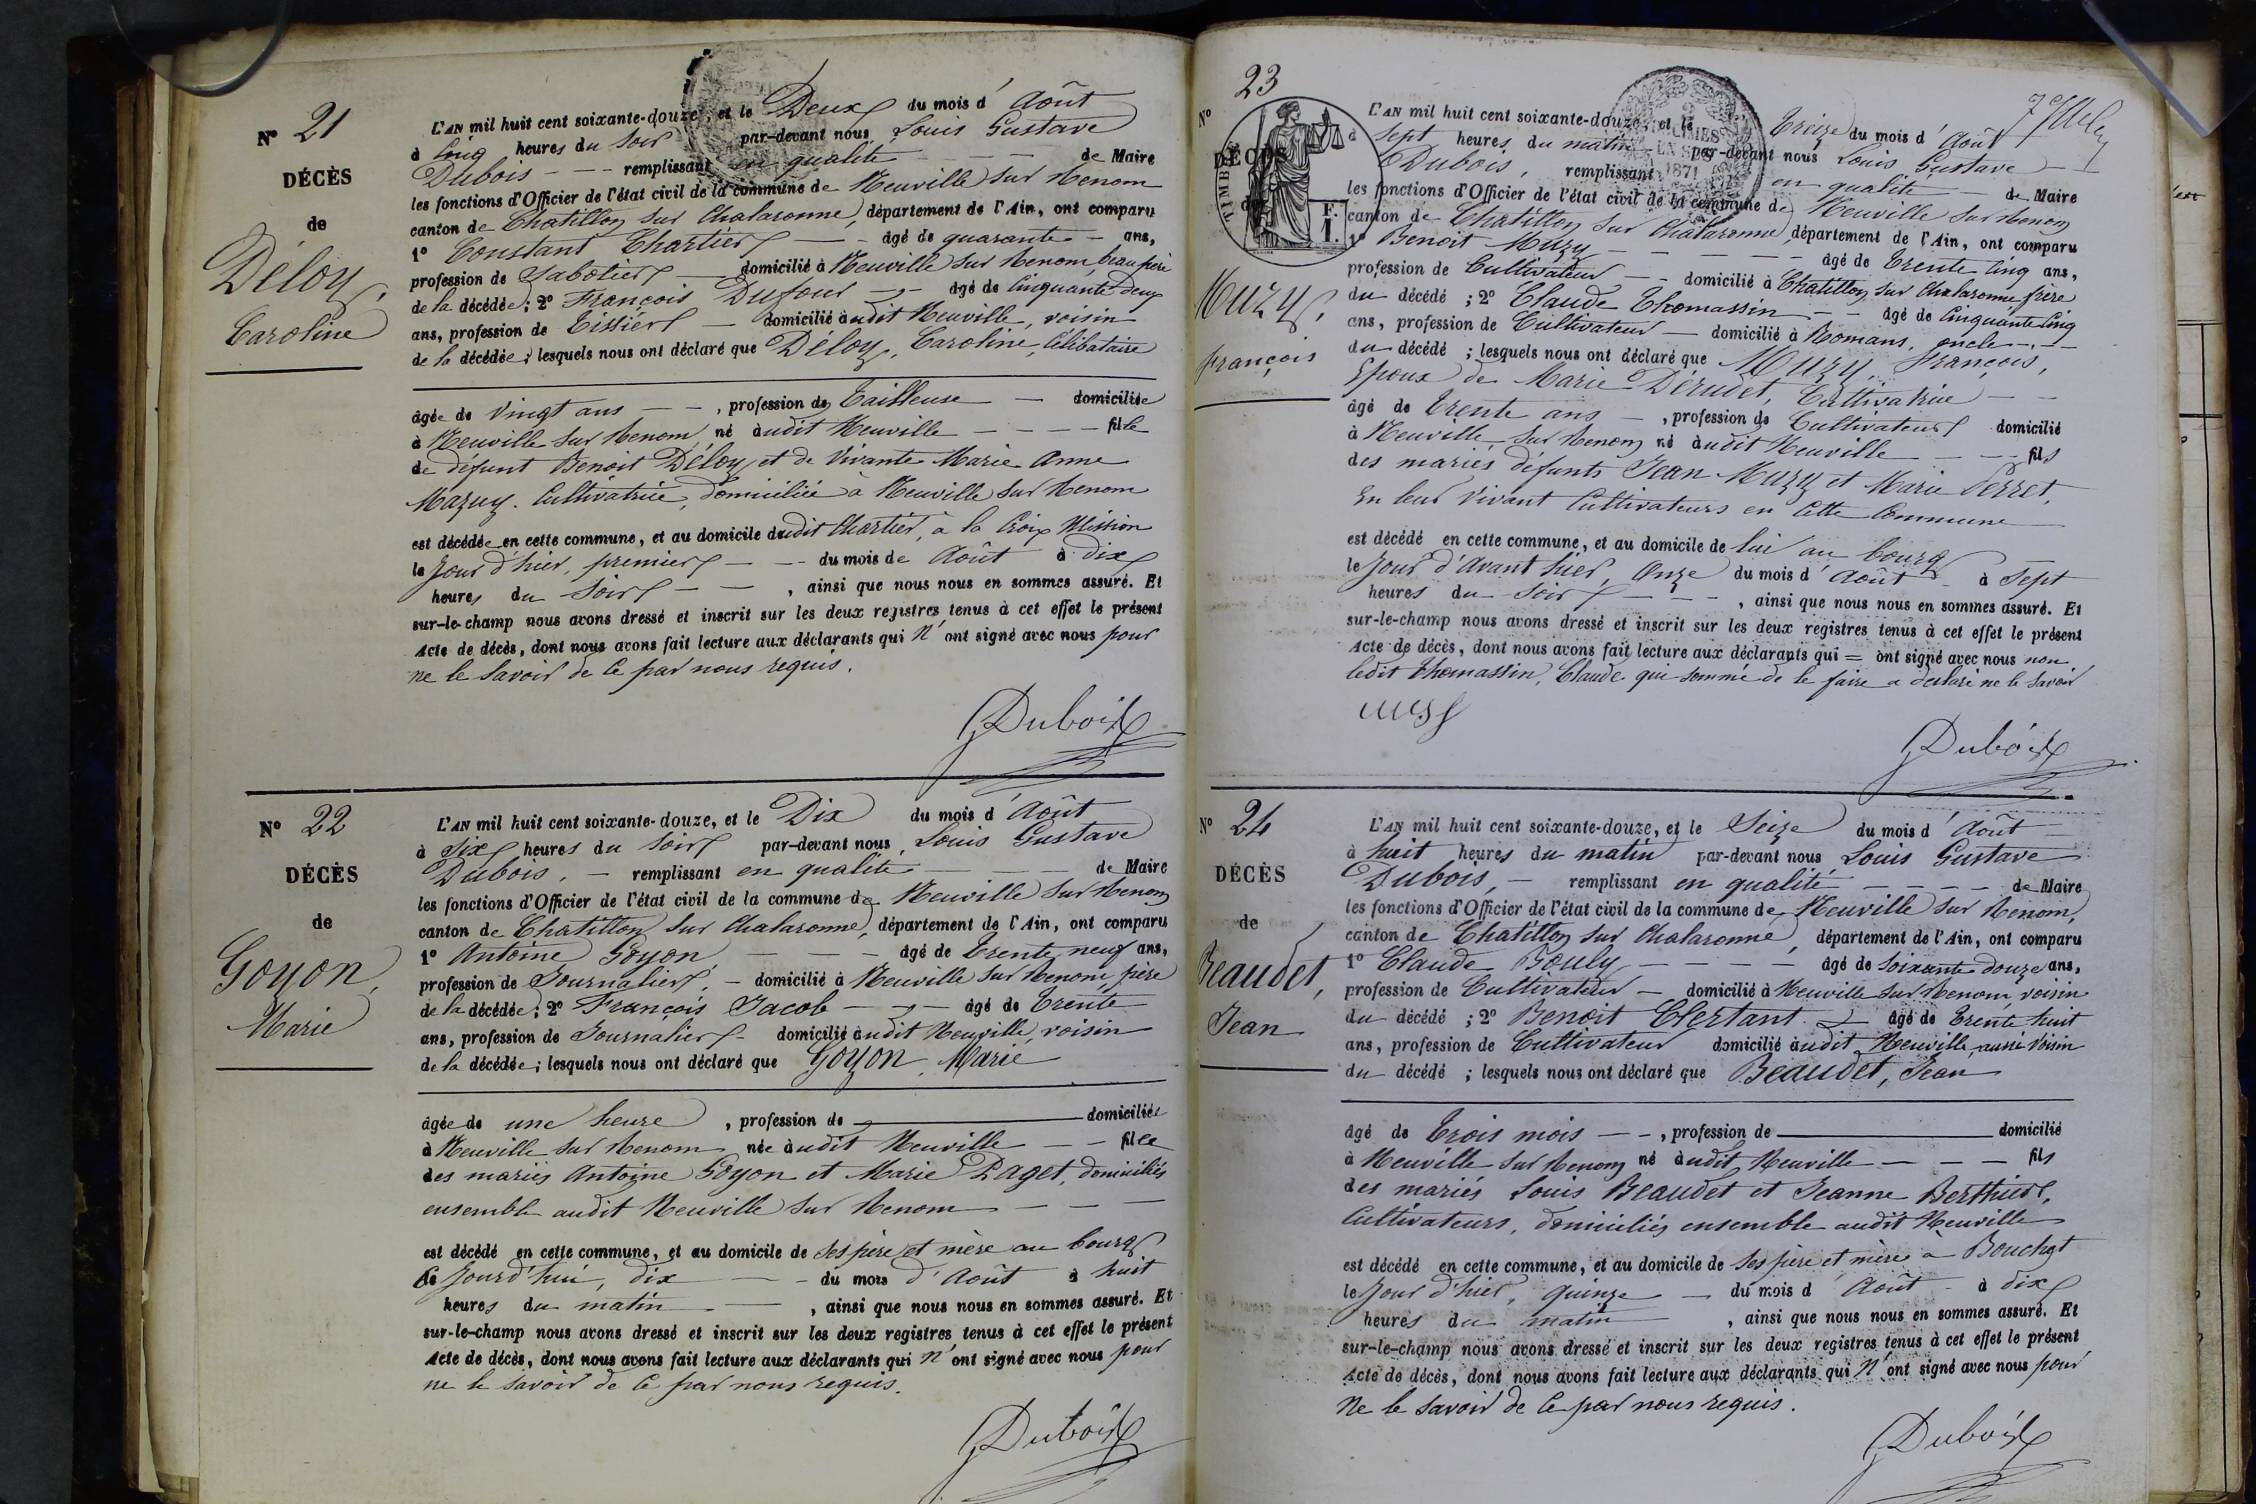 N° 21
DÉCÈS
de
Déloy,
Caroline
L'AN mil huit cent soixante-douze, et le Deux du mois d'Août
à Cinq heures du soir par-devant nous, Louis Gustave
Dubois - - remplissant en qualité - - - de Maire
les fonctions d'Officier de l'état civil de la commune de Neuville sur Renom
canton de Chatillon sur Chalaronne, département de l'Ain, ont comparu
1° Constant Chartier - - âgé de quarante - ans,
profession de Sabotier - domicilié à Neuville sur Renom, beau père
de la décédée; 2° François Dufour - - âgé de Cinquante deux
ans, profession de Tissier - domicilié audit Neuville, voisin
de la décédée; lesquels nous ont déclaré que Déloy, Caroline, Célibataire
âgée de vingt ans - - , profession de Tailleuse - domiciliée
à Neuville sur Renom, né audit Neuville - - - - fille
de défunt Benoit Déloy et de vivante Marie Anne
Mazuy. Cultivatrice, domiciliée à Neuville sur Renom
est décédée en cette commune, et au domicile dudit Chartier, à la Croix Mission
le Jour d'hier, premier - - - du mois de Août à dix
heures du soir - - , ainsi que nous nous en sommes assuré. Et
sur-le-champ nous avons dressé et inscrit sur les deux registres tenus à cet effet le présent
Acte de décès, dont nous avons fait lecture aux déclarants qui n'ont signé avec nous pour
ne le savoir de ce par nous requis.
Dubois
N° 22
DÉCÈS
de
Goyon,
Marie
L'AN mil huit cent soixante-douze, et le Dix du mois d'Août
à Six heures du soir par-devant nous, Louis Gustave
Dubois, - remplissant en qualité - - - de Maire
les fonctions d'Officier de l'état civil de la commune de Neuville sur Renom
canton de Chatillon sur Chalaronne, département de l'Ain, ont comparu
1° Antoine Goyon - - - âgé de Trente neuf ans,
profession de Journalier, - domicilié à Neuville sur Renom, père
de la décédée; 2° François Jacob - - âgé de Trente
ans, profession de Journalier - domicilié audit Neuville, voisin
de la décédée; lesquels nous ont déclaré que Goyon, Marie
âgée de une heure , profession de domiciliée
à Neuville sur Renom née audit Neuville - - fille
des mariés Antoine Goyon et Marie Paget, domiciliés
ensemble audit Neuville sur Renom - - -
est décédé en cette commune, et au domicile de ses père et mère au bourg
Ce Jourd'hui, dix - - du mois d'Août à huit
heures du matin - - , ainsi que nous nous en sommes assuré. Et
sur-le-champ nous avons dressé et inscrit sur les deux registres tenus à cet effet le présent
Acte de décès, dont nous avons fait lecture aux déclarants qui n'ont signé avec nous pour
ne le savoir de ce par nous requis.
Dubois
N° 23
DÉCÈS
de
TIMBRE
F.
1.
1871
Muzy,
François
L'AN mil huit cent soixante-douze, et le Treize du mois d'Août
à Sept heures du matin par-devant nous Louis Gustave -
Dubois, remplissant en qualité de Maire
les fonctions d'Officier de l'état civil de la commune de Neuville sur Renom
canton de Chatillon sur Chalaronne, département de l'Ain, ont comparu
1° Benoit Muzy - - - - - âgé de Trente Cinq ans,
profession de Cultivateur - - domicilié à Chatillon sur Chalaronne, frère
du décédé ; 2° Claude Thomassin - - âgé de Cinquante Cinq
ans, profession de Cultivateur - domicilié à Romans, oncle - -
du décédé ; lesquels nous ont déclaré que Muzy François,
Epoux de Marie Dérudet, Cultivatrice - -
âgé de Trente ans - , profession de Cultivateur domicilié
à Neuville sur Renom né audit Neuville - - - fils
des mariés défunts Jean Muzy et Marie Perret,
En leur vivant Cultivateurs en Cette Commune
est décédé en cette commune, et au domicile de lui au bourg
le Jour d'avant hier, Onze du mois d'Août - à Sept
heures du soir - - - , ainsi que nous nous en sommes assuré. Et
sur-le-champ nous avons dressé et inscrit sur les deux registres tenus à cet effet le présent
Acte de décès, dont nous avons fait lecture aux déclarants qui = ont signé avec nous non
ledit Thomassin, Claude qui sommé de le faire a déclaré ne le savoir
Dubois
N° 24
DÉCÈS
de
Beaudet,
Jean
L'AN mil huit cent soixante-douze, et le Seize du mois d'Août
à huit heures du matin par-devant nous Louis Gustave
Dubois, - remplissant en qualité - - - - de Maire
les fonctions d'Officier de l'état civil de la commune de Neuville sur Renom,
canton de Chatillon sur Chalaronne, département de l'Ain, ont comparu
1° Claude Bouly - - - - âgé de soixante douze ans,
profession de Cultivateur - domicilié à Neuville sur Renom, voisin
du décédé ; 2° Benoit Clertant - âgé de Trente huit
ans, profession de Cultivateur domicilié audit Neuville, aussi voisin
du décédé ; lesquels nous ont déclaré que Beaudet, Jean
âgé de Trois mois - - , profession de domicilié
à Neuville sur Renom né audit Neuville - - - fils
des mariés Louis Beaudet et Jeanne Berthier,
Cultivateurs, domiciliés ensemble audit Neuville
est décédé en cette commune, et au domicile de ses père et mère à Bouchat
le Jour d'hier, quinze - du mois d'Août - à dix
heures du matin , ainsi que nous nous en sommes assuré. Et
sur-le-champ nous avons dressé et inscrit sur les deux registres tenus à cet effet le présent
Acte de décès, dont nous avons fait lecture aux déclarants qui n'ont signé avec nous pour
Ne le savoir de ce par nous requis.
Dubois